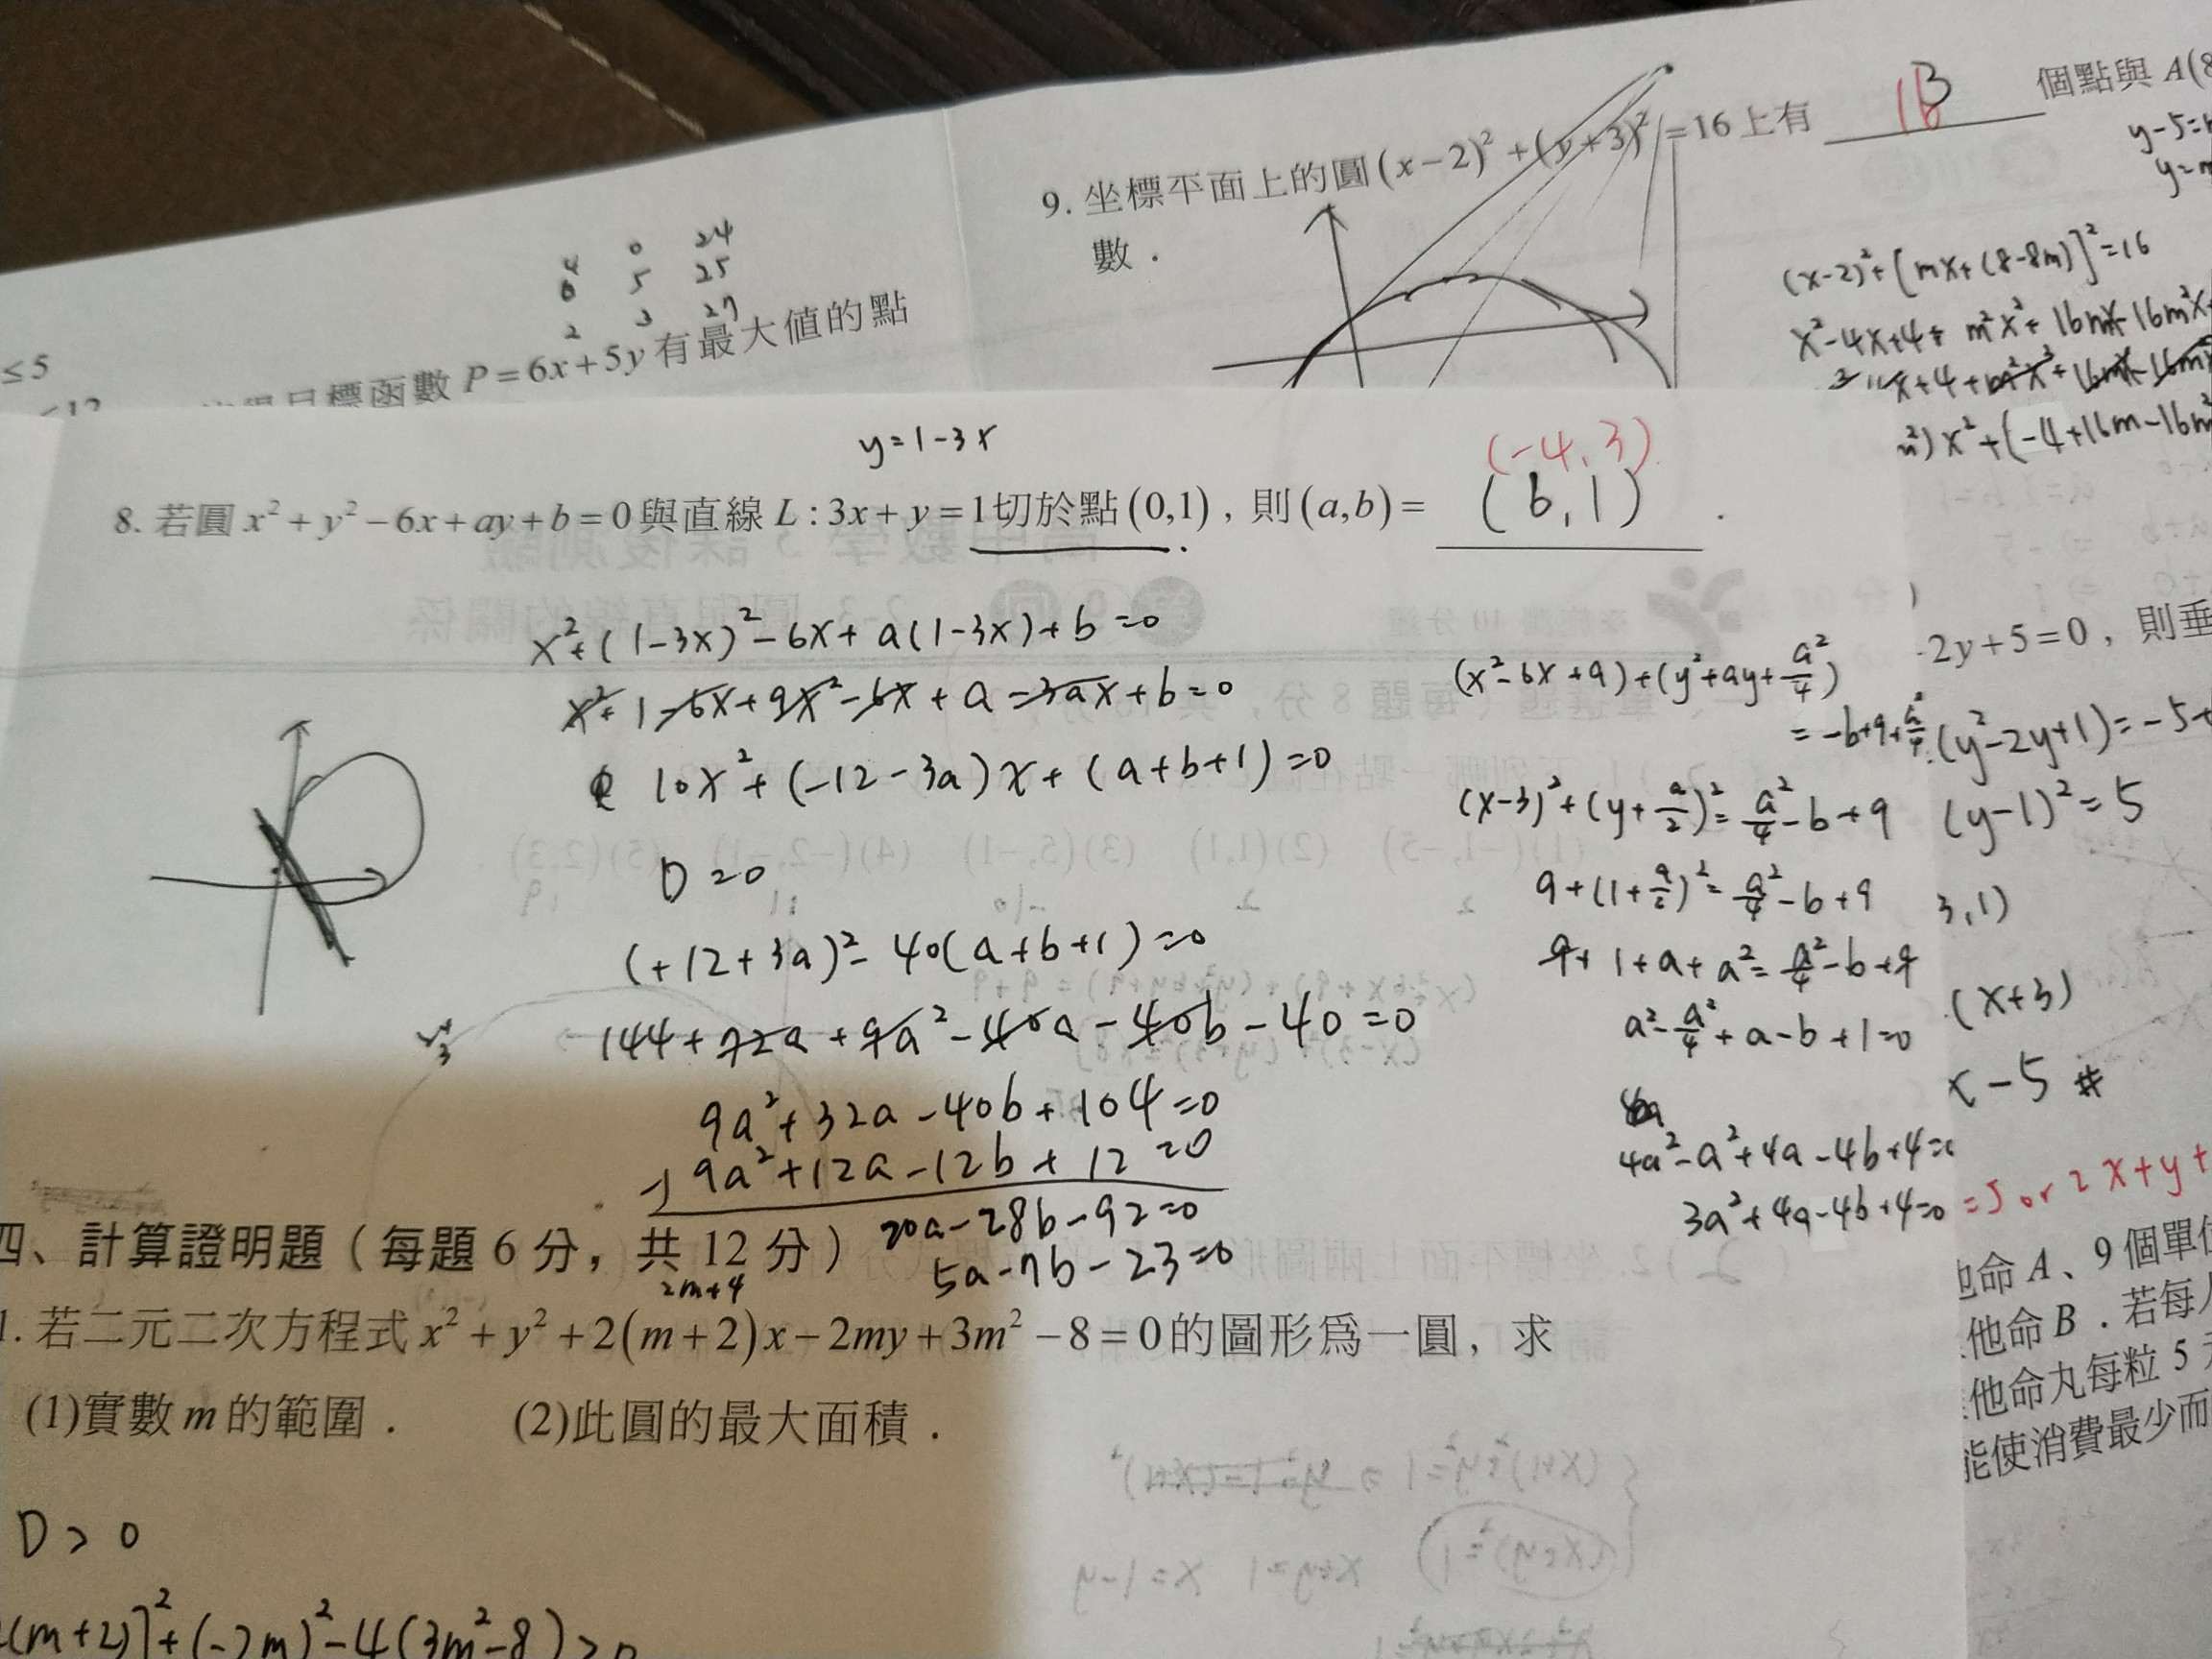 9. 坐標平面上的圓(x−2)²+(y+3)²=16上有 個點與 A(8
數.
y-5=
(x-2)²+[mx+(8-8m)]²=16
x²-4x+4+ m²x²+16mx-16m²x
x²+(-4+16m-16m²
4 0 24
0 5 25
2 3 27
≤5
目標函數 P=6x+5y 有最大值的點
y=1-3x
(-4,3)
8. 若圓 x²+y²−6x+ay+b=0與直線 L:3x+y=1切於點(0,1), 則(a,b)= (6,1).
x²+(1-3x)²-6x+a(1-3x)+b=0
x²+1-6x+9x²-6x+a-3ax+b=0
10x²+(-12-3a)x+(a+b+1)=0
D=0
(+12+3a)²-40(a+b+1)=0
144+72a+9a²-40a-40b-40=0
9a²+32a-40b+104=0
-)9a²+12a-12b+12=0
20a-28b-92=0
5a-7b-23=0
(x²-6x+9)+(y²+ay+a²/4)
=-b+9+a²/4
(x-3)²+(y+a/2)²=a²/4-b+9
9+(1+a/2)²=a²/4-b+9
9+1+a+a²=a²/4-b+9
a²-a²/4+a-b+1=0
4a²-a²+4a-4b+4=0
3a²+4a-4b+4=0
-2y+5=0, 則垂
(y²-2y+1)=-5+
(y-1)²=5
3,1)
(x+3)
x-5 #
=5 or 2x+y+
他命 A、9 個單位
他命 B.若每人
他命丸每粒 5 元
能使消費最少而
四、計算證明題(每題 6 分,共 12 分)
2m+4
1. 若二元二次方程式 x²+y²+2(m+2)x−2my+3m²−8=0的圖形為一圓, 求
(1)實數 m 的範圍. (2)此圓的最大面積.
D>0
(m+2)]²+(-2m)²-4(3m²-8)>0